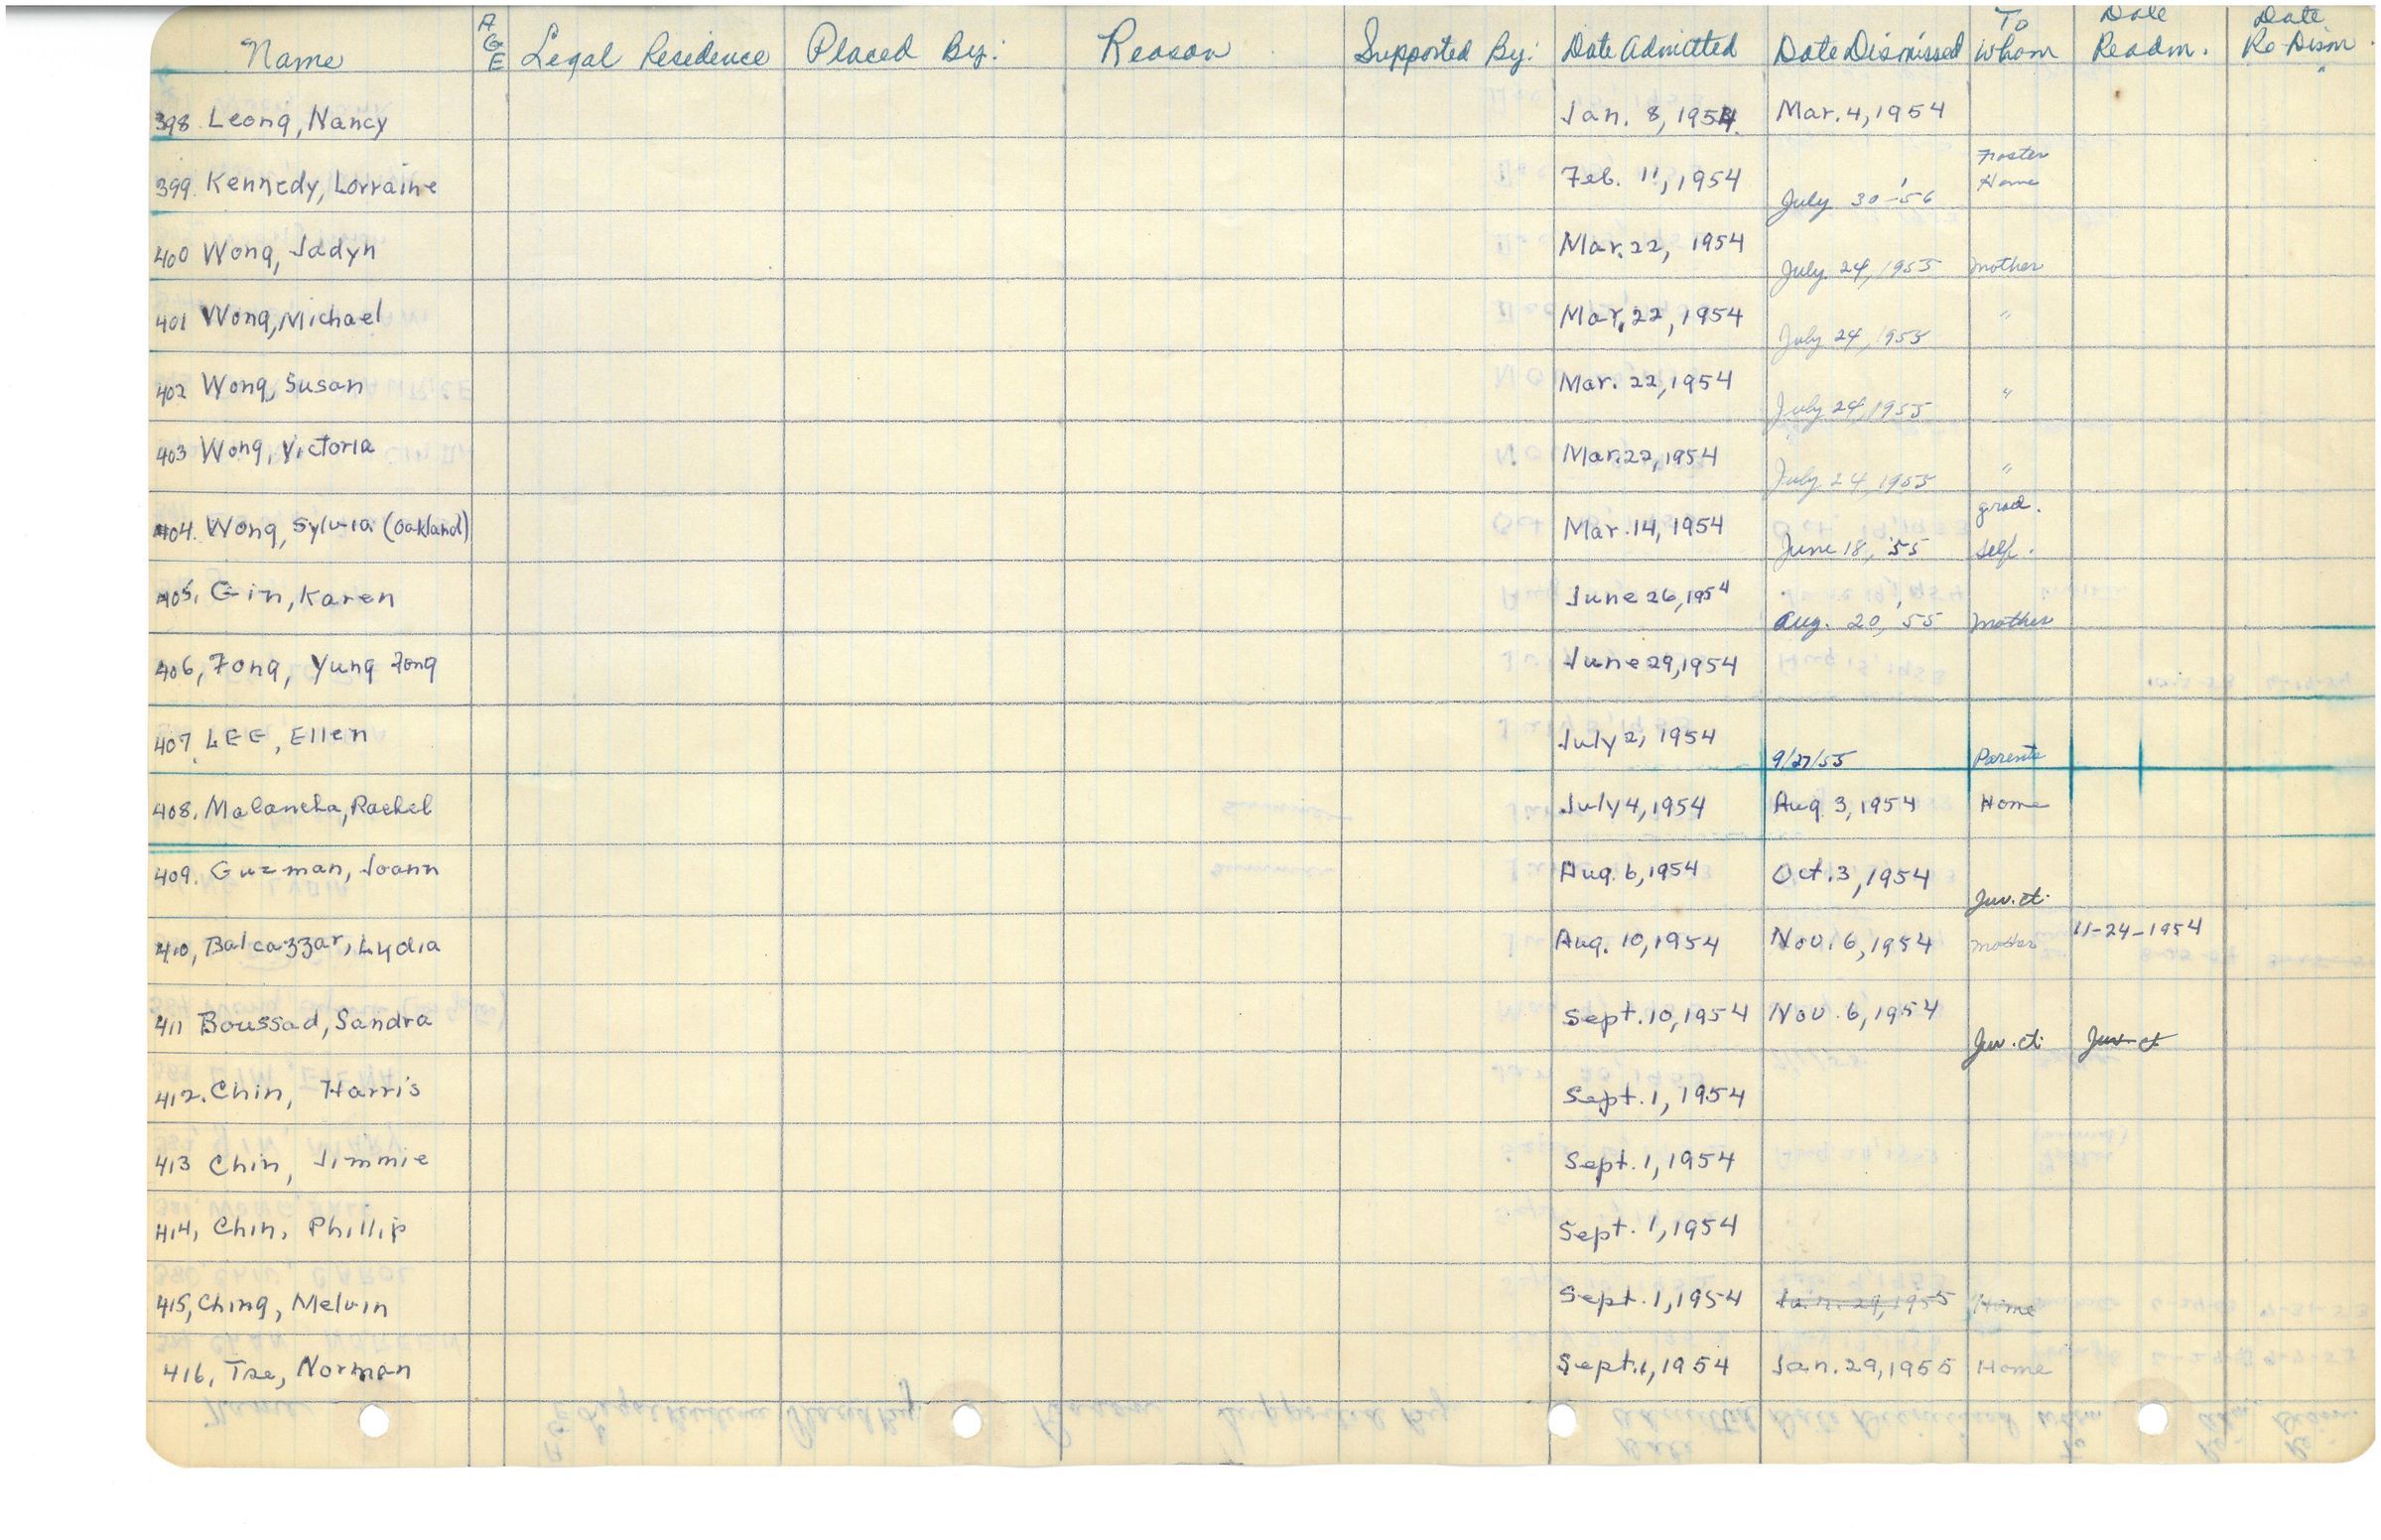 Name AGE Legal Residence Placed By: Reason Supported By: Date Admitted Date Dismissed To Whom Date Readm. Date Re-Dism.
398 Leong, Nancy Jan. 8, 1954 Mar. 4, 1954
399. Kennedy, Lorraine Feb. 11, 1954 July 30-'56 Foster Home
400 Wong, Jadyn Mar. 22, 1954 July 24, 1955 Mother
401 Wong, Michael Mar. 22, 1954 July 24, 1955 "
402 Wong, Susan Mar. 22, 1954 July 24, 1955 "
403 Wong, Victoria Mar. 22, 1954 July 24, 1955 "
404. Wong, Sylvia (Oakland) Mar. 14, 1954 June 18, '55 grad. Self.
405. Gin, Karen June 26, 1954 Aug. 20, '55 Mother
406, Fong, Yung Fong June 29, 1954
407. LEE, Ellen July 2, 1954 9/27/55 Parents
408. Malancha, Rachel July 4, 1954 Aug. 3, 1954 Home
409. Guzman, Joann Aug. 6, 1954 Oct. 3, 1954 Juv. ct.
410, Balcazzar, Lydia Aug. 10, 1954 Nov. 6, 1954 mother 11-24-1954
411 Boussad, Sandra Sept. 10, 1954 Nov. 6, 1954 Juv. ct. Juv ct
412. Chin, Harris Sept. 1, 1954
413 Chin, Jimmie Sept. 1, 1954
414, Chin, Phillip Sept. 1, 1954
415, Ching, Melvin Sept. 1, 1954 Jan. 29, 1955 Home
416, Tse, Norman Sept. 1, 1954 Jan. 29, 1955 Home